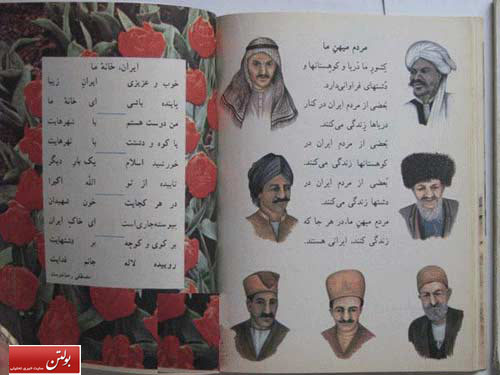 مردم میهنِ ما
کشورِ ما دریا و کوهستانها و
دشتهای فراوانی دارد.
بعضی از مردم ایران در کنار
دریاها زندگی می‌کنند.
بعضی از مردم ایران در
کوهستانها زندگی می‌کنند.
بعضی از مردم ایران در
دشتها زندگی می‌کنند.
مردم میهنِ ما، در هر جا که
زندگی کنند، ایرانی هستند.
ایران، خانهٔ ما
خوب و عزیزی ایرانِ زیبا
پاینده باشی ای خانهٔ ما
من دوست هستم با شهرهایت
با کوه و دشتت با نهرهایت
خورشید اسلام یک بار دیگر
تابیده از تو الله اکبر!
در هر کجایت خون شهیدان
پیوسته جاری است ای خاکِ ایران
بر کوی و کوچه بر دشتهایت
روییده لاله جانم فدایت
مصطفی رحماندوست
بولتن